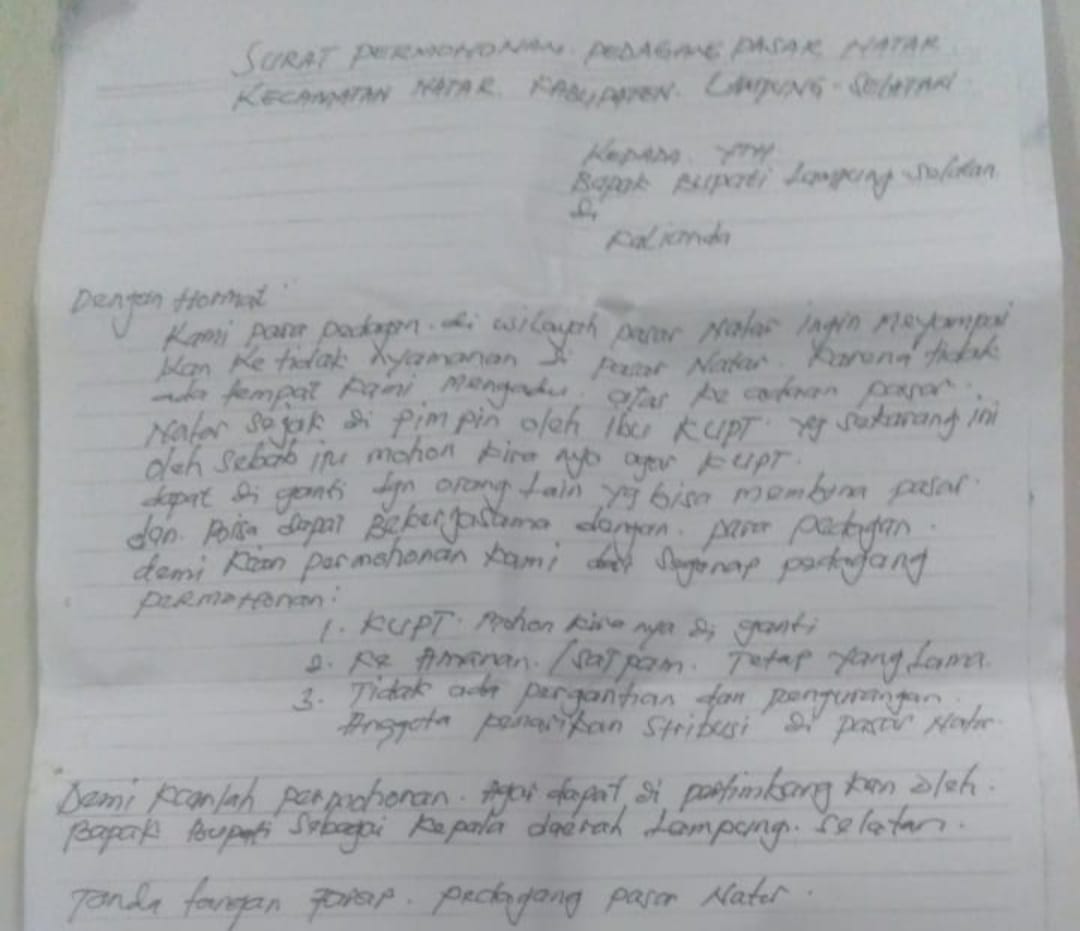 SURAT PERMOHONAN. PEDAGANG PASAR NATAR
KECAMATAN NATAR. KABUPATEN. LAMPUNG. SELATAN
KEPADA. YTH
Bapak Bupati Lampung Selatan
di
Kalianda
Dengan Hormat
Kami para pedagan. di wilayah pasar Natar ingin Meyampai
kan Ketidak nyamanan di pasar Natar. Karena tidak
ada tempat kami mengadu. atas ke pasar.
Natar sejak di pimpin oleh ibu KUPT. yg sekarang ini
oleh sebab itu mohon kira nya agar KUPT.
dapat di ganti dgn orang lain yg bisa membina pasar.
dan. Bisa dapat Bekerjasama dengan. para pedagan.
demi kian permohonan kami dari segenap pedagang
PERMOHONAN:
1. KUPT. Mohon kira nya di ganti
2. Ke Amanan. /Satpam. Tetap yang Lama.
3. Tidak ada pergantian dan pengurangan.
Anggota penarikan Stribusi di pasar Natar.
Demi kianlah permohonan. Agar dapat di pertimbang kan oleh.
Bapak Bupati Sebagai Kepala daerah Lampung. Selatan.
Tanda tangan pedagang pasar Natar.